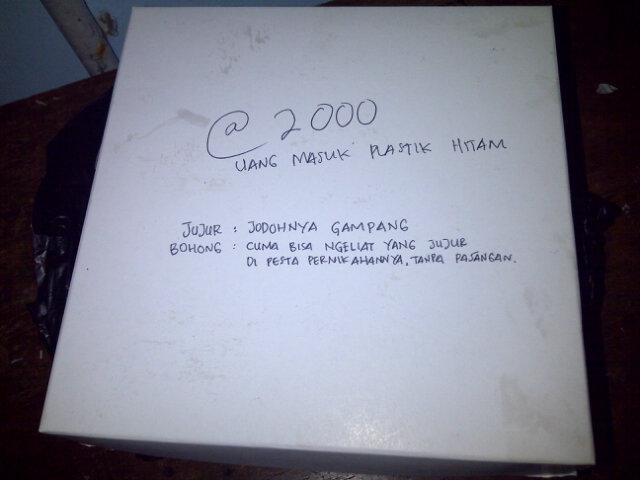 @ 2000
UANG MASUK PLASTIK HITAM
JUJUR : JODOHNYA GAMPANG
BOHONG : CUMA BISA NGELIAT YANG JUJUR
DI PESTA PERNIKAHANNYA, TANPA PASANGAN.